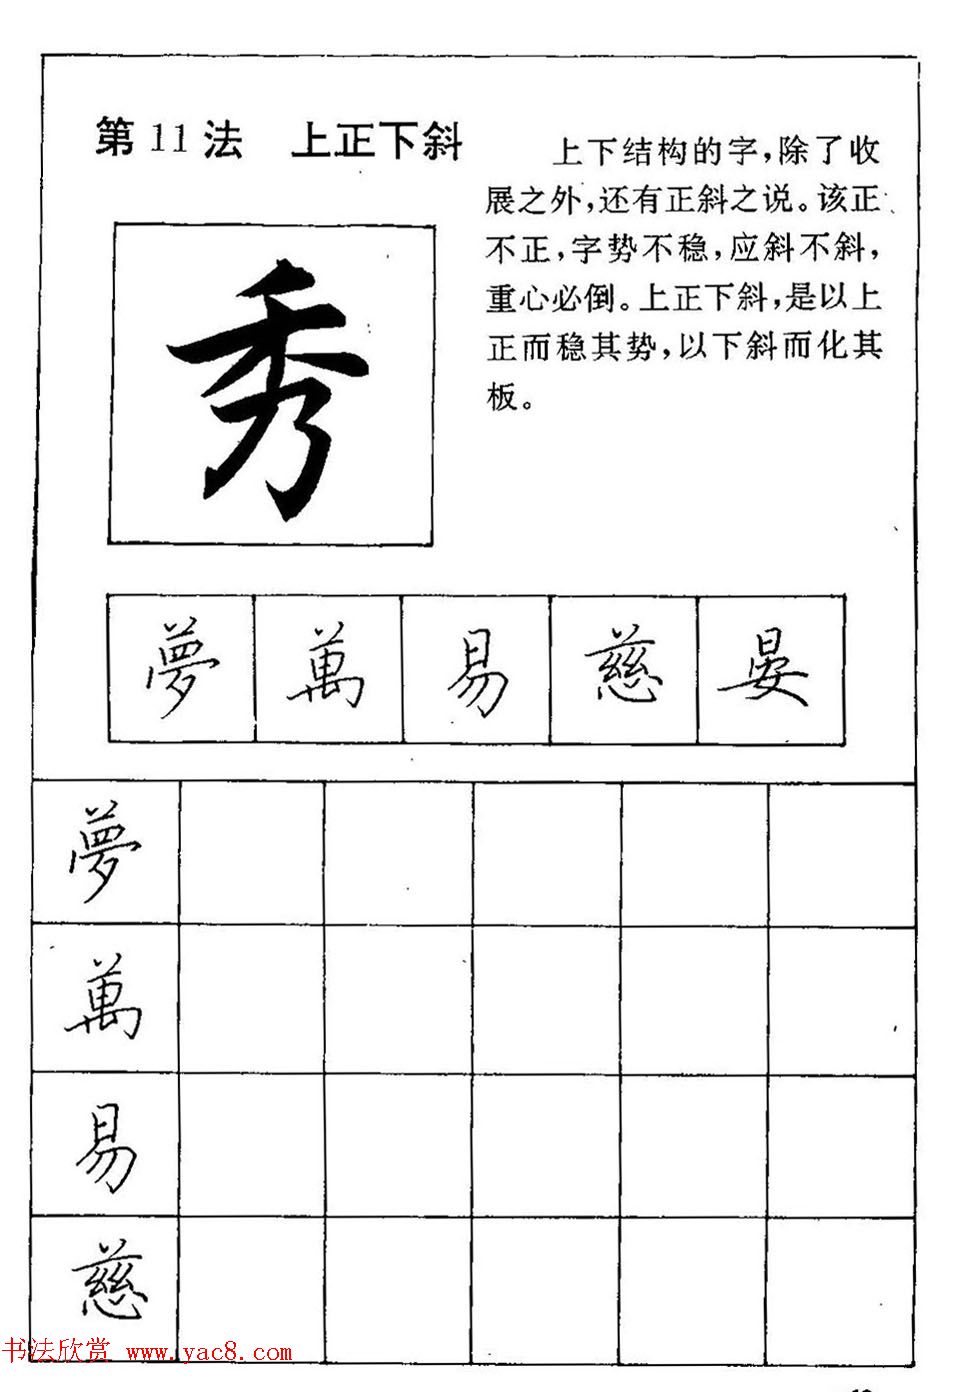 第11法 上正下斜
上下结构的字，除了收
展之外，还有正斜之说。该正
不正，字势不稳，应斜不斜，
重心必倒。上正下斜，是以上
正而稳其势，以下斜而化其
板。
秀
夢 萬 易 慈 晏
夢
萬
易
慈
书法欣赏 www.yac8.com